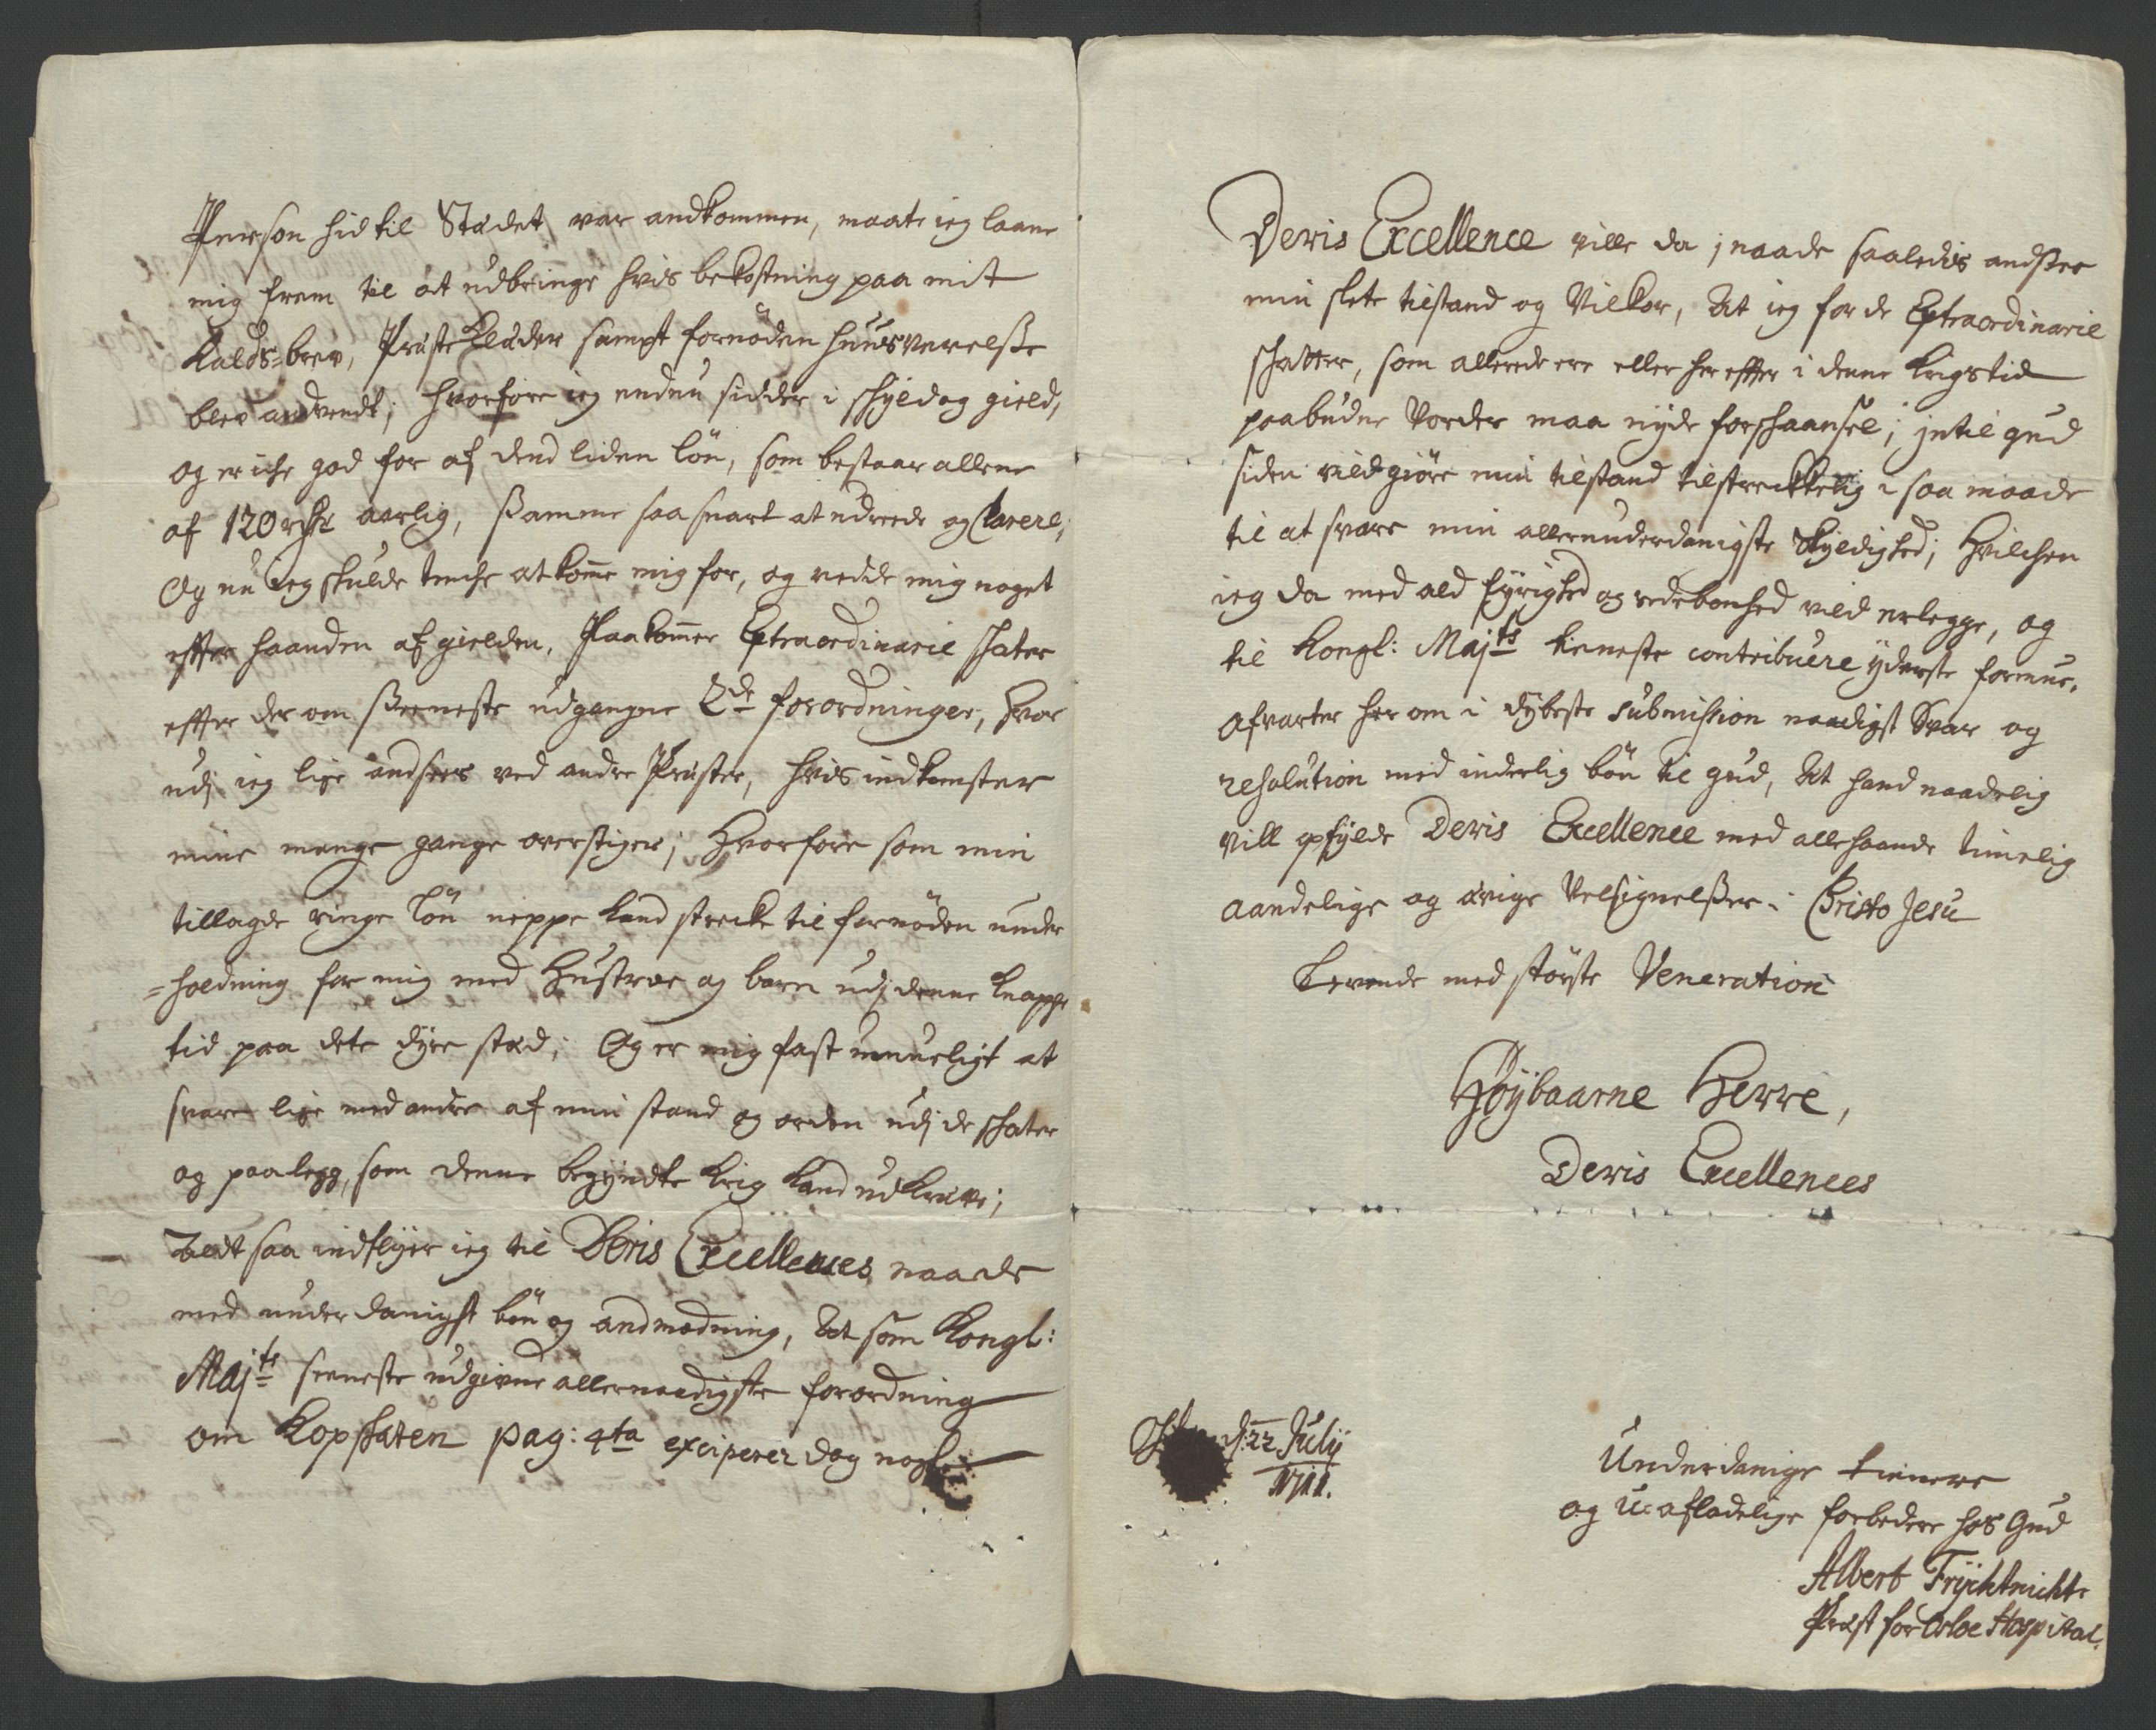 Person hid til Stædet var andkommen, maate ieg laane
mig frem til at udbringe hvis bekostning paa mit
Kalds-brev, Præste Klæder sampt fornøden huusværelsse
blev andvendt; hvorfore ieg endnu sidder i schyld og gield,
og er iche god for af dend liden løn, som bestaar allene
af 120 rdr aarlig, samme saa snart at udreede og Clarere;
Og nu ieg skulde tenche at komme mig for, og redde mig noget
effter haanden af gielden, Paakommer Extraordinarie schater
effter der om seeneste udgangne 2de forordninger, hvor
udj ieg lige andsees ved andre Præster, hvis indkomster
mine mange gange overstiger; Hvorfore som min
tillagde ringe løn neppe kand strecke til fornøden under
=holdning for mig med Hustroe og børn udj denne knappe
tid paa dete dyre stæd; Og er mig fast umueligt at
svare lige med andre af min stand og orden udj de schater
og paalegg, som denne begyndte krig kand udkræve;
Altsaa indflyer ieg til Deris Excellences naade
med underdanigst bøn og andmodning, At som Kongl:
Majts seeneste udgivne allernaadigste forordning
om Kopskaten pag: 4ta exciperer dog nogle
Deris Excellence ville da j naade saaledis andsee
min slete tilstand og Vilkor, At ieg for de Extraordinarie
schatter, som allerede ere eller her effter i denne krigstid
paabudne vorder maa nyde forschaansel; jntil gud
siden vild giøre min tilstand tilstreckkelig i saa maade
til at svare min allerunderdanigste skyldighed; Hvilchen
ieg da med ald fyrighed og redebonhed vild erlegge, og
til Kongl: Majts tieneste contribuere yderste formue.
Afvarter her om i dybeste submission naadigst Svar og
resolution med inderlig bøn til gud, At hand naadelig
vill opfylde Deris Excellence med allehaande timelig
aandelige og ævige Velsignelsser i Christo Jesu
Levende med største Veneration
Høybaarne Herre,
Deris Excellences
d: 22 July
1711.
Underdanige tienere
og U-afladelige forbedere hos Gud
Albert Frychtnicht
Præst for Osloe Hospital.